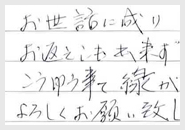 お世話に成り
お返えしも出来ず
こう申う事で縁が
よろしくお願い致し